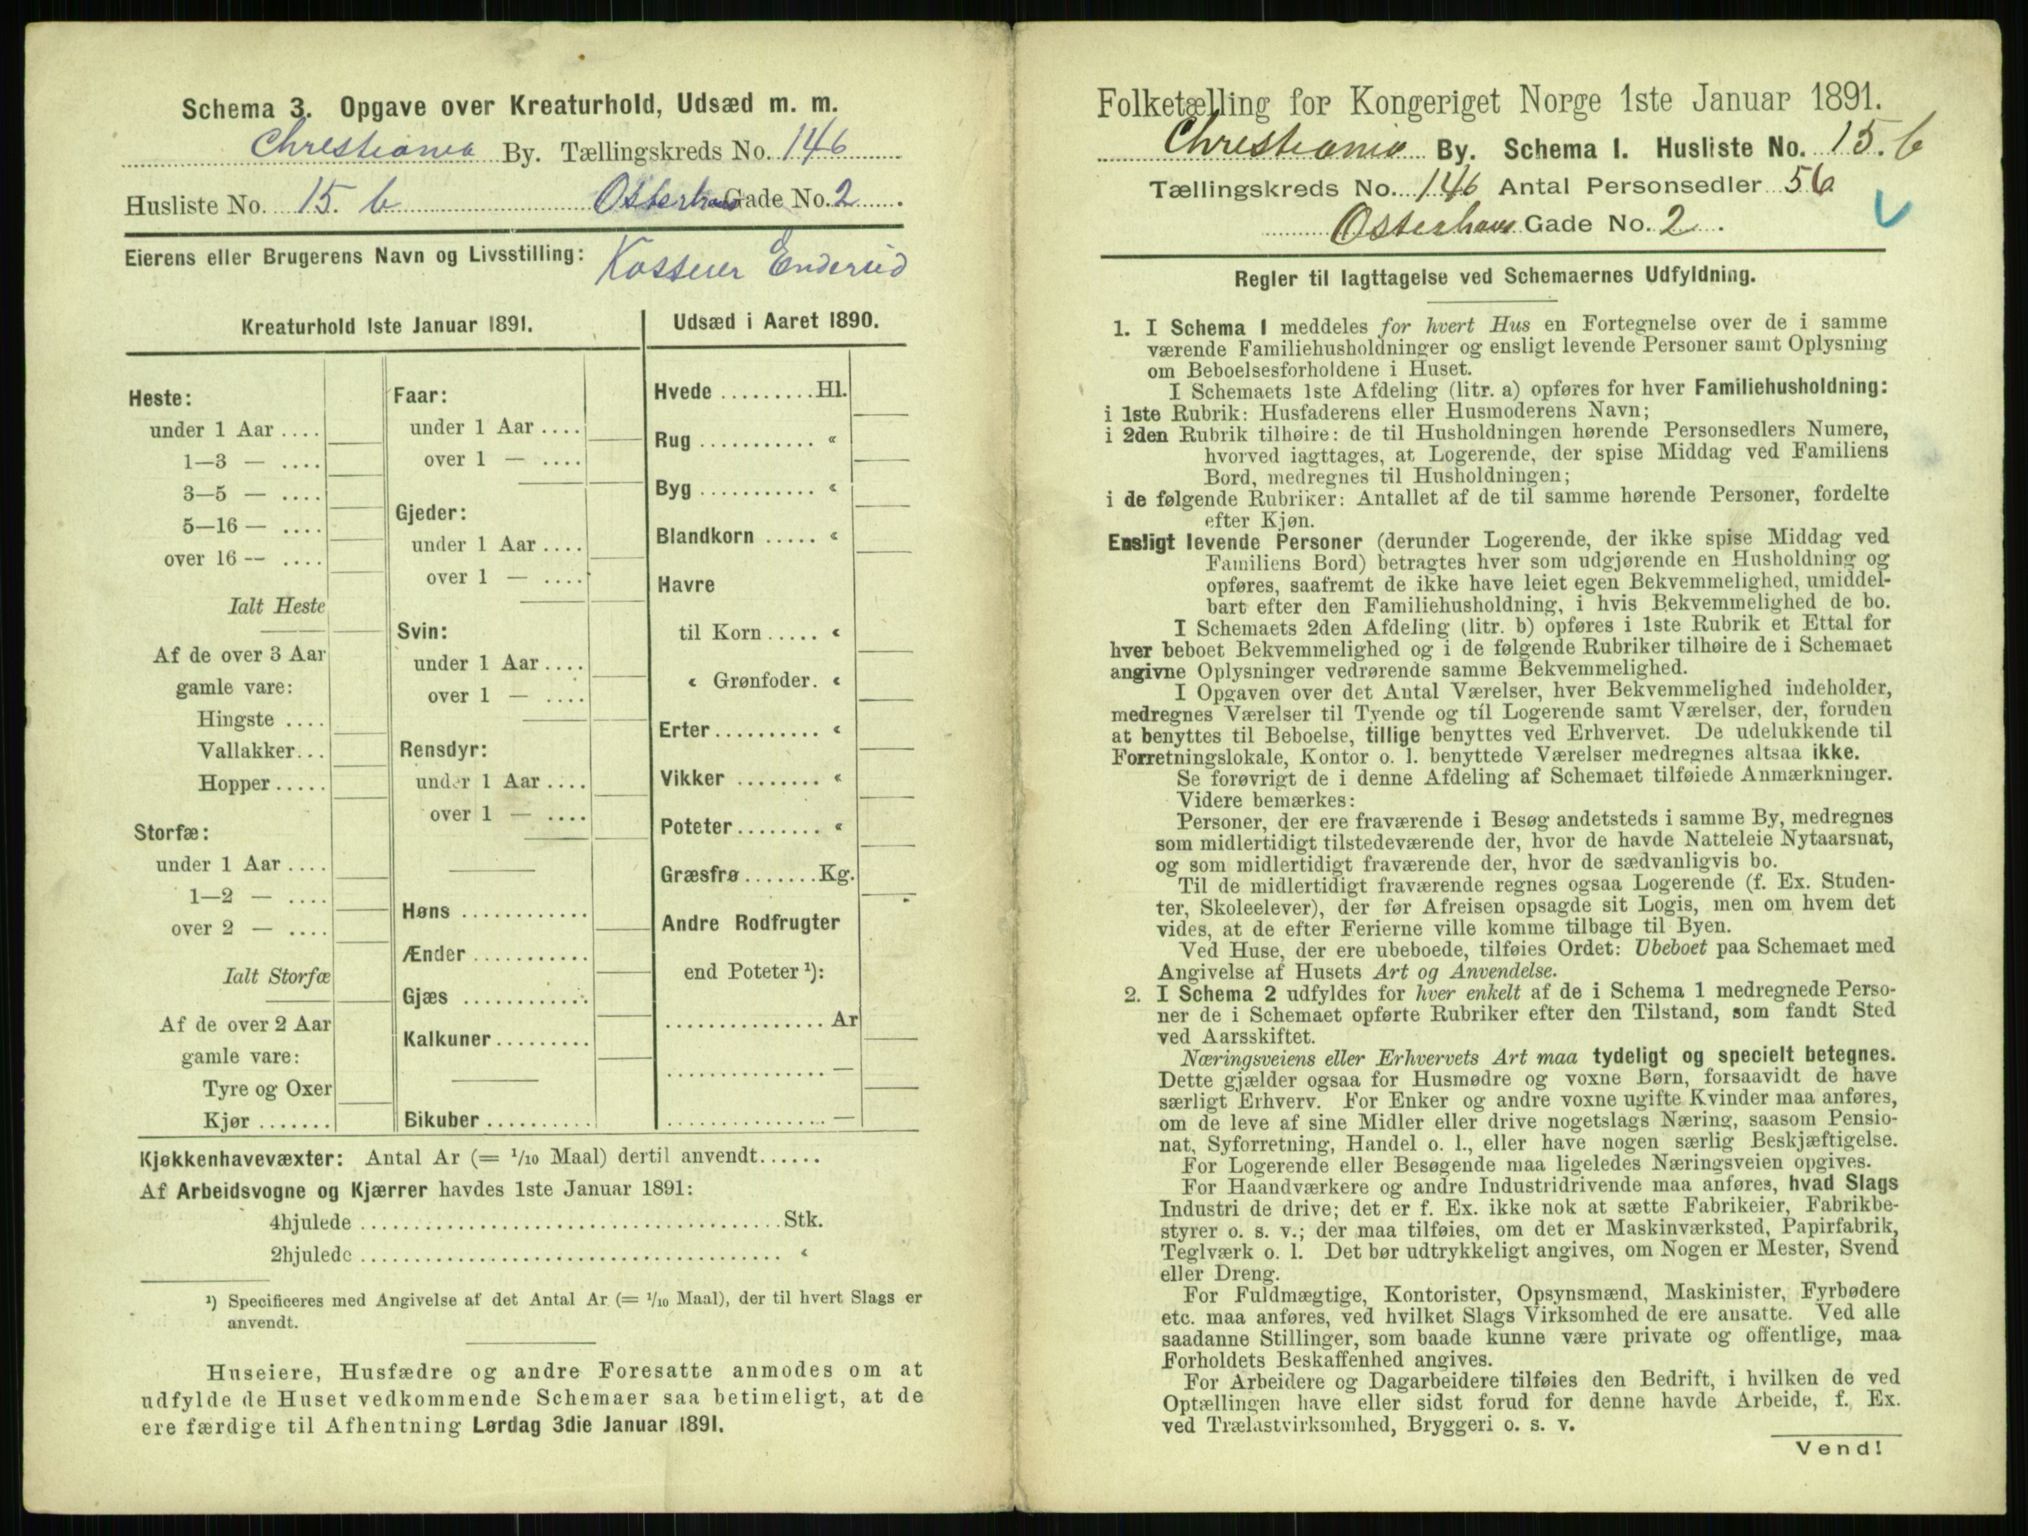 Schema 3. Opgave over Kreaturhold, Udsæd m. m.
Christiania By. Tællingskreds No. 146
Husliste No. 15. b Osterhaus Gade No. 2.
Eierens eller Brugerens Navn og Livsstilling: Kasserer Enderud
Kreaturhold 1ste Januar 1891.
Heste:
under 1 Aar ....
1—3 — ....
3—5 — ....
5—16 — ....
over 16 — ....
Ialt Heste
Af de over 3 Aar
gamle vare:
Hingste ....
Vallakker...
Hopper.....
Storfæ:
under 1 Aar ....
1—2 — ....
over 2 — ....
Ialt Storfæ
Af de over 2 Aar
gamle vare:
Tyre og Oxer
Kjør .......
Faar:
under 1 Aar ....
over 1 — ....
Gjeder:
under 1 Aar ....
over 1 — ....
Svin:
under 1 Aar ....
over 1 — ....
Rensdyr:
under 1 Aar ....
over 1 — ....
Høns ............
Ænder ...........
Gjæs ............
Kalkuner.........
Bikuber ..........
Udsæd i Aaret 1890.
Hvede .........Hl.
Rug ........... «
Byg ........... «
Blandkorn ..... «
Havre
til Korn ..... «
« Grønfoder. «
Erter.......... «
Vikker ........ «
Poteter........ «
Græsfrø .......Kg.
Andre Rodfrugter
end Poteter ¹):
............... Ar
............... —
............... —
Kjøkkenhavevæxter: Antal Ar (= 1/10 Maal) dertil anvendt......
Af Arbeidsvogne og Kjærrer havdes 1ste Januar 1891:
4hjulede .......................................Stk.
2hjulede ....................................... «
¹) Specificeres med Angivelse af det Antal Ar (= 1/10 Maal), der til hvert Slags er
anvendt.
Huseiere, Husfædre og andre Foresatte anmodes om at
udfylde de Huset vedkommende Schemaer saa betimeligt, at de
ere færdige til Afhentning Lørdag 3die Januar 1891.
Folketælling for Kongeriget Norge 1ste Januar 1891.
Christiania By. Schema I. Husliste No. 15. b
Tællingskreds No. 146 Antal Personsedler 56
Osterhaus Gade No. 2.
Regler til Iagttagelse ved Schemaernes Udfyldning.
1. I Schema 1 meddeles for hvert Hus en Fortegnelse over de i samme
værende Familiehusholdninger og ensligt levende Personer samt Oplysning
om Beboelsesforholdene i Huset.
I Schemaets 1ste Afdeling (litr. a) opføres for hver Familiehusholdning:
i 1ste Rubrik: Husfaderens eller Husmoderens Navn;
i 2den Rubrik tilhøire: de til Husholdningen hørende Personsedlers Numere,
hvorved iagttages, at Logerende, der spise Middag ved Familiens
Bord, medregnes til Husholdningen;
i de følgende Rubriker: Antallet af de til samme hørende Personer, fordelte
efter Kjøn.
Ensligt levende Personer (derunder Logerende, der ikke spise Middag ved
Familiens Bord) betragtes hver som udgjørende en Husholdning og
opføres, saafremt de ikke have leiet egen Bekvemmelighed, umiddel-
bart efter den Familiehusholdning, i hvis Bekvemmelighed de bo.
I Schemaets 2den Afdeling (litr. b) opføres i 1ste Rubrik et Ettal for
hver beboet Bekvemmelighed og i de følgende Rubriker tilhøire de i Schemaet
angivne Oplysninger vedrørende samme Bekvemmelighed.
I Opgaven over det Antal Værelser, hver Bekvemmelighed indeholder,
medregnes Værelser til Tyende og til Logerende samt Værelser, der, foruden
at benyttes til Beboelse, tillige benyttes ved Erhvervet. De udelukkende til
Forretningslokale, Kontor o. l. benyttede Værelser medregnes altsaa ikke.
Se forøvrigt de i denne Afdeling af Schemaet tilføiede Anmærkninger.
Videre bemærkes:
Personer, der ere fraværende i Besøg andetsteds i samme By, medregnes
som midlertidigt tilstedeværende der, hvor de havde Natteleie Nytaarsnat,
og som midlertidigt fraværende der, hvor de sædvanligvis bo.
Til de midlertidigt fraværende regnes ogsaa Logerende (f. Ex. Studen-
ter, Skoleelever), der før Afreisen opsagde sit Logis, men om hvem det
vides, at de efter Ferierne ville komme tilbage til Byen.
Ved Huse, der ere ubeboede, tilføies Ordet: Ubeboet paa Schemaet med
Angivelse af Husets Art og Anvendelse.
2. I Schema 2 udfyldes for hver enkelt af de i Schema 1 medregnede Perso-
ner de i Schemaet opførte Rubriker efter den Tilstand, som fandt Sted
ved Aarsskiftet.
Næringsveiens eller Erhvervets Art maa tydeligt og specielt betegnes.
Dette gjælder ogsaa for Husmødre og voxne Børn, forsaavidt de have
særligt Erhverv. For Enker og andre voxne ugifte Kvinder maa anføres,
om de leve af sine Midler eller drive nogetslags Næring, saasom Pensio-
nat, Syforretning, Handel o. l., eller have nogen særlig Beskjæftigelse.
For Logerende eller Besøgende maa ligeledes Næringsveien opgives.
For Haandværkere og andre Industridrivende maa anføres, hvad Slags
Industri de drive; det er f. Ex. ikke nok at sætte Fabrikeier, Fabrikbe-
styrer o. s. v.; der maa tilføies, om det er Maskinværksted, Papirfabrik,
Teglværk o. l. Det bør udtrykkeligt angives, om Nogen er Mester, Svend
eller Dreng.
For Fuldmægtige, Kontorister, Opsynsmænd, Maskinister, Fyrbødere
etc. maa anføres, ved hvilket Slags Virksomhed de ere ansatte. Ved alle
saadanne Stillinger, som baade kunne være private og offentlige, maa
Forholdets Beskaffenhed angives.
For Arbeidere og Dagarbeidere tilføies den Bedrift, i hvilken de ved
Optællingen have eller sidst forud for denne havde Arbeide, f. Ex.
ved Trælastvirksomhed, Bryggeri o. s. v.
Vend!